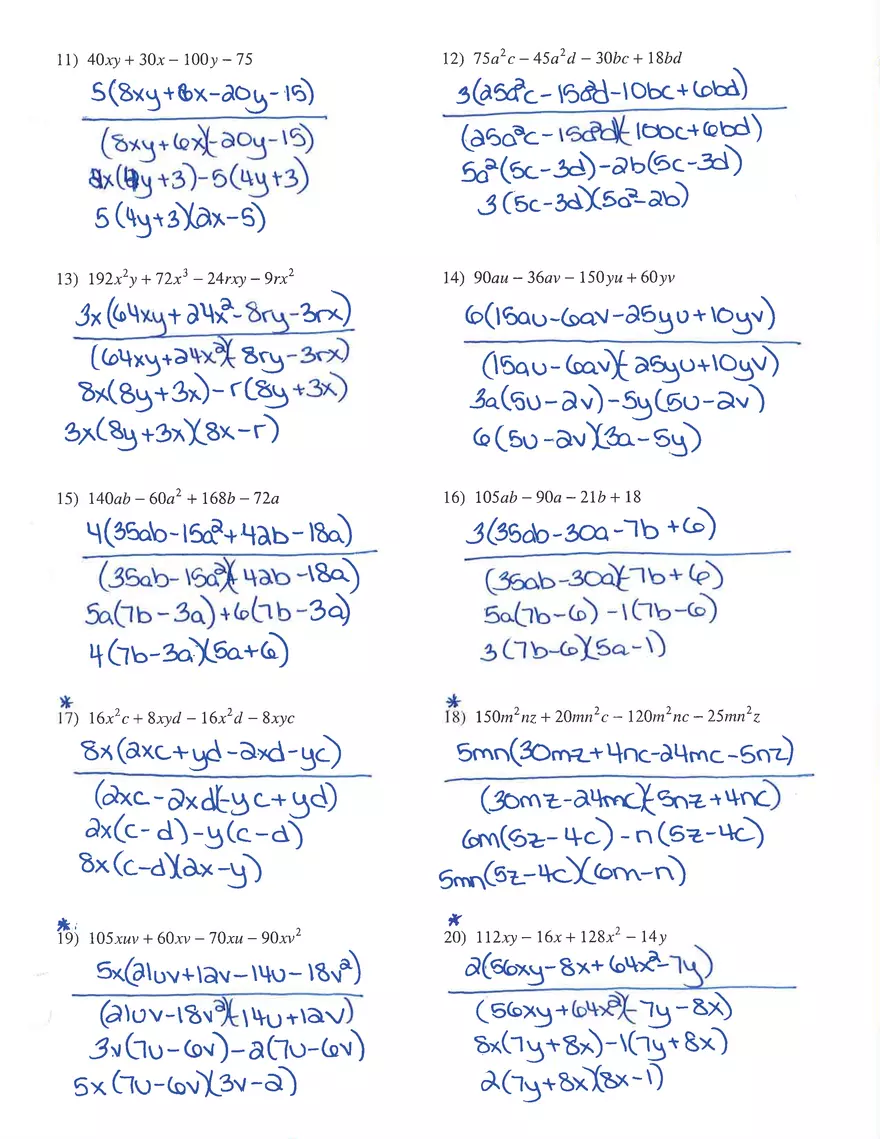 11) 40xy + 30x − 100y − 75
5(8xy+6x-20y-15)
(8xy+6x)(-20y-15)
2x(4y+3)-5(4y+3)
5(4y+3)(2x-5)
12) 75a²c − 45a²d − 30bc + 18bd
3(25a²c-15a²d-10bc+6bd)
(25a²c-15a²d)(-10bc+6bd)
5a²(5c-3d)-2b(5c-3d)
3(5c-3d)(5a²-2b)
13) 192x²y + 72x³ − 24rxy − 9rx²
3x(64xy+24x²-8ry-3rx)
(64xy+24x²)(-8ry-3rx)
8x(8y+3x)-r(8y+3x)
3x(8y+3x)(8x-r)
14) 90au − 36av − 150yu + 60yv
6(15au-6av-25yu+10yv)
(15au-6av)(-25yu+10yv)
3a(5u-2v)-5y(5u-2v)
6(5u-2v)(3a-5y)
15) 140ab − 60a² + 168b − 72a
4(35ab-15a²+42b-18a)
(35ab-15a²)(+42b-18a)
5a(7b-3a)+6(7b-3a)
4(7b-3a)(5a+6)
16) 105ab − 90a − 21b + 18
3(35ab-30a-7b+6)
(35ab-30a)(-7b+6)
5a(7b-6)-1(7b-6)
3(7b-6)(5a-1)
*
17) 16x²c + 8xyd − 16x²d − 8xyc
8x(2xc+yd-2xd-yc)
(2xc-2xd)(-yc+yd)
2x(c-d)-y(c-d)
8x(c-d)(2x-y)
*
18) 150m²nz + 20mn²c − 120m²nc − 25mn²z
5mn(30mz+4nc-24mc-5nz)
(30mz-24mc)(-5nz+4nc)
6m(5z-4c)-n(5z-4c)
5mn(5z-4c)(6m-n)
*
19) 105xuv + 60xv − 70xu − 90xv²
5x(21uv+12v-14u-18v²)
(21uv-18v²)(-14u+12v)
3v(7u-6v)-2(7u-6v)
5x(7u-6v)(3v-2)
*
20) 112xy − 16x + 128x² − 14y
2(56xy-8x+64x²-7y)
(56xy+64x²)(-7y-8x)
8x(7y+8x)-1(7y+8x)
2(7y+8x)(8x-1)